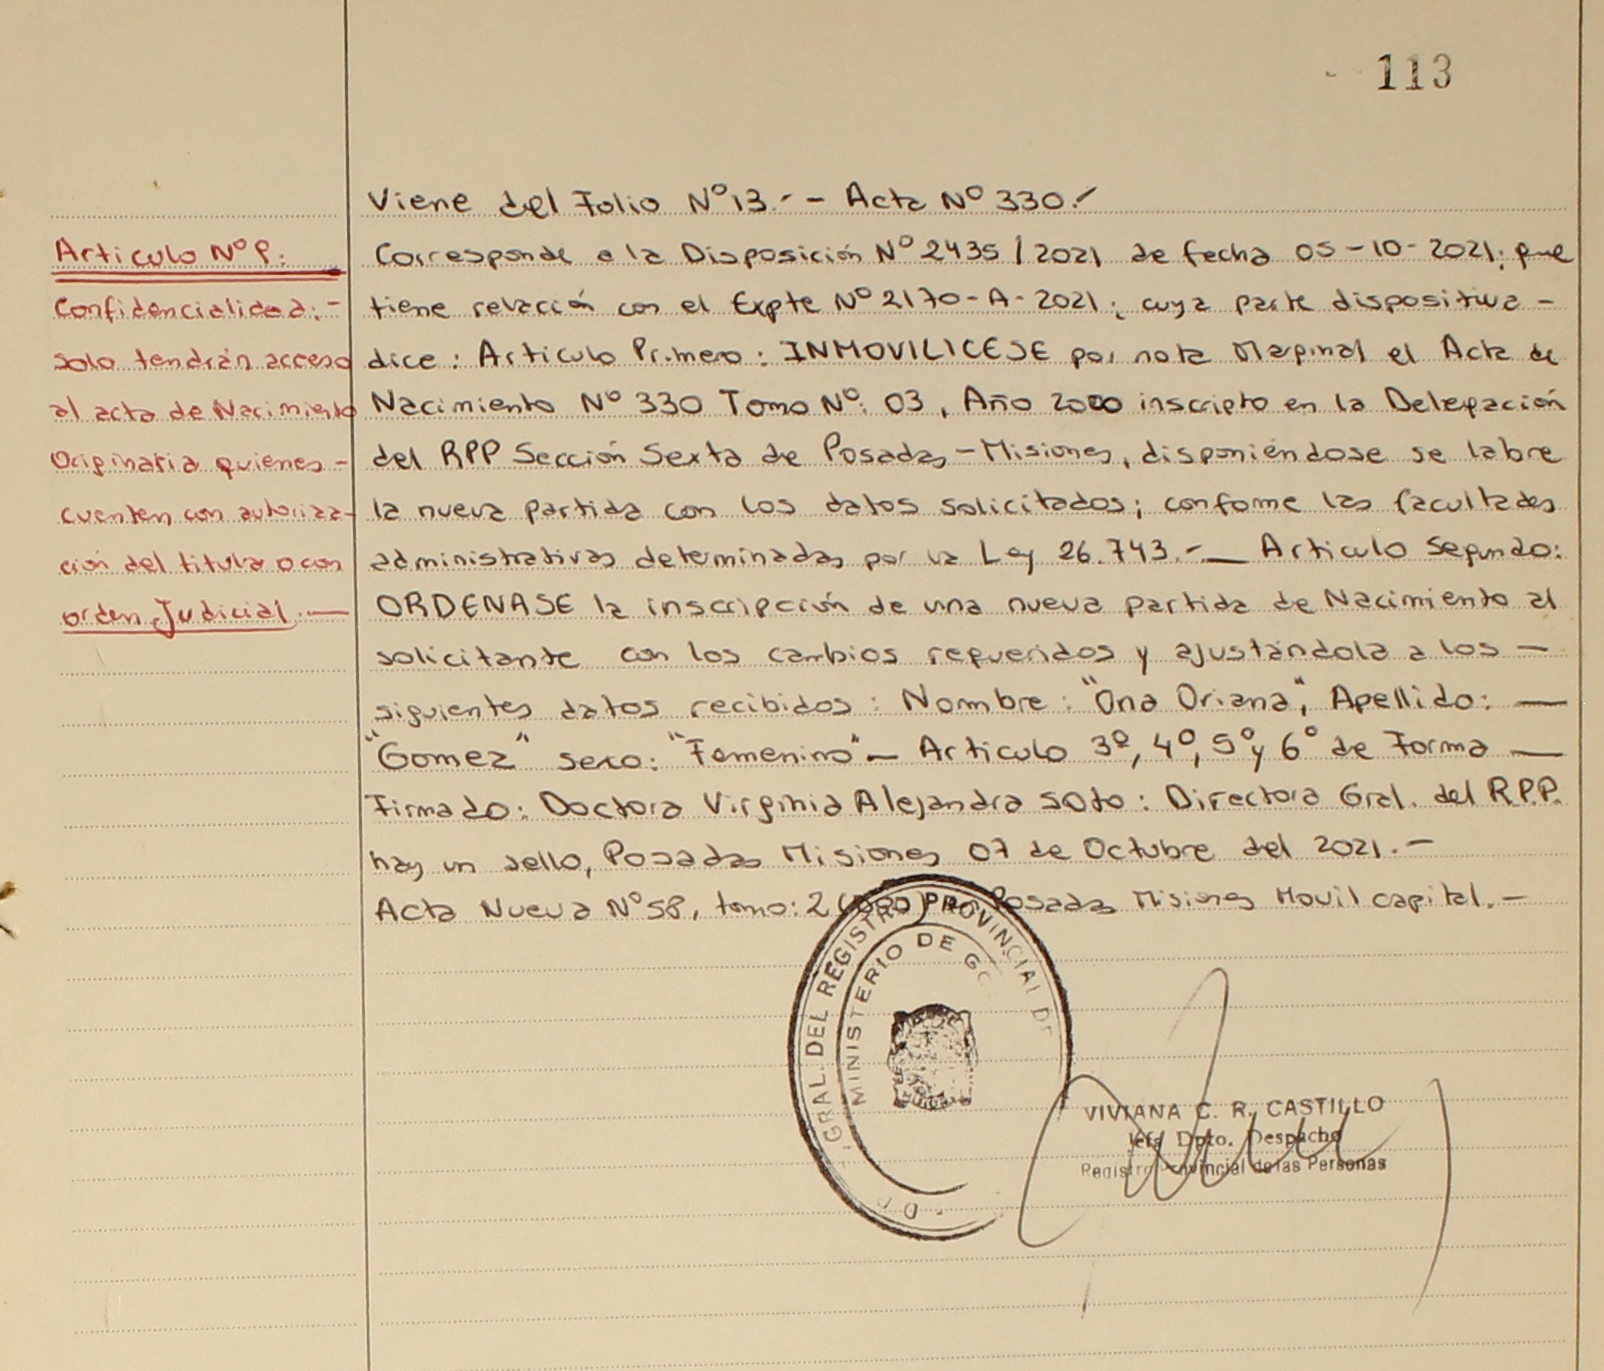 113
Viene del Folio Nº 13.- - Acta Nº 330.-
Articulo Nº 9:
Confidencialidad:-
solo tendrán acceso
al acta de Nacimiento
Originaria quienes -
cuenten con autoriza-
ción del titular o con
orden Judicial.—
Corresponde a la Disposición Nº 2435/2021 de fecha 05-10-2021; que
tiene relación con el Expte Nº 2170-A-2021; cuya parte dispositiva -
dice: Articulo Primero: INMOVILICESE por nota Marginal el Acta de
Nacimiento Nº 330 Tomo Nº: 03, Año 2000 inscripto en la Delegación
del RPP Sección Sexta de Posadas-Misiones, disponiéndose se labre
la nueva partida con los datos solicitados; conforme las facultades
administrativas determinadas por la Ley 26.743.-— Articulo Segundo:
ORDENASE la inscripción de una nueva partida de Nacimiento al
solicitante con los cambios requeridos y ajustándola a los —
siguientes datos recibidos: Nombre: "Ona Oriana", Apellido: —
"Gomez" sexo: "Femenino"— Articulo 3º, 4º, 5º y 6º de Forma —
Firmado: Doctora Virginia Alejandra Soto: Directora Gral. del R.P.P.
hay un sello, Posadas Misiones 07 de Octubre del 2021.-
Acta Nueva Nº 58, tomo: 2 Posadas Misiones Movil capital.-
GRAL. DEL REGISTRO PROVINCIAL DE
MINISTERIO DE
VIVIANA C. R. CASTILLO
Jefa Dpto. Despacho
Registro Provincial de las Personas